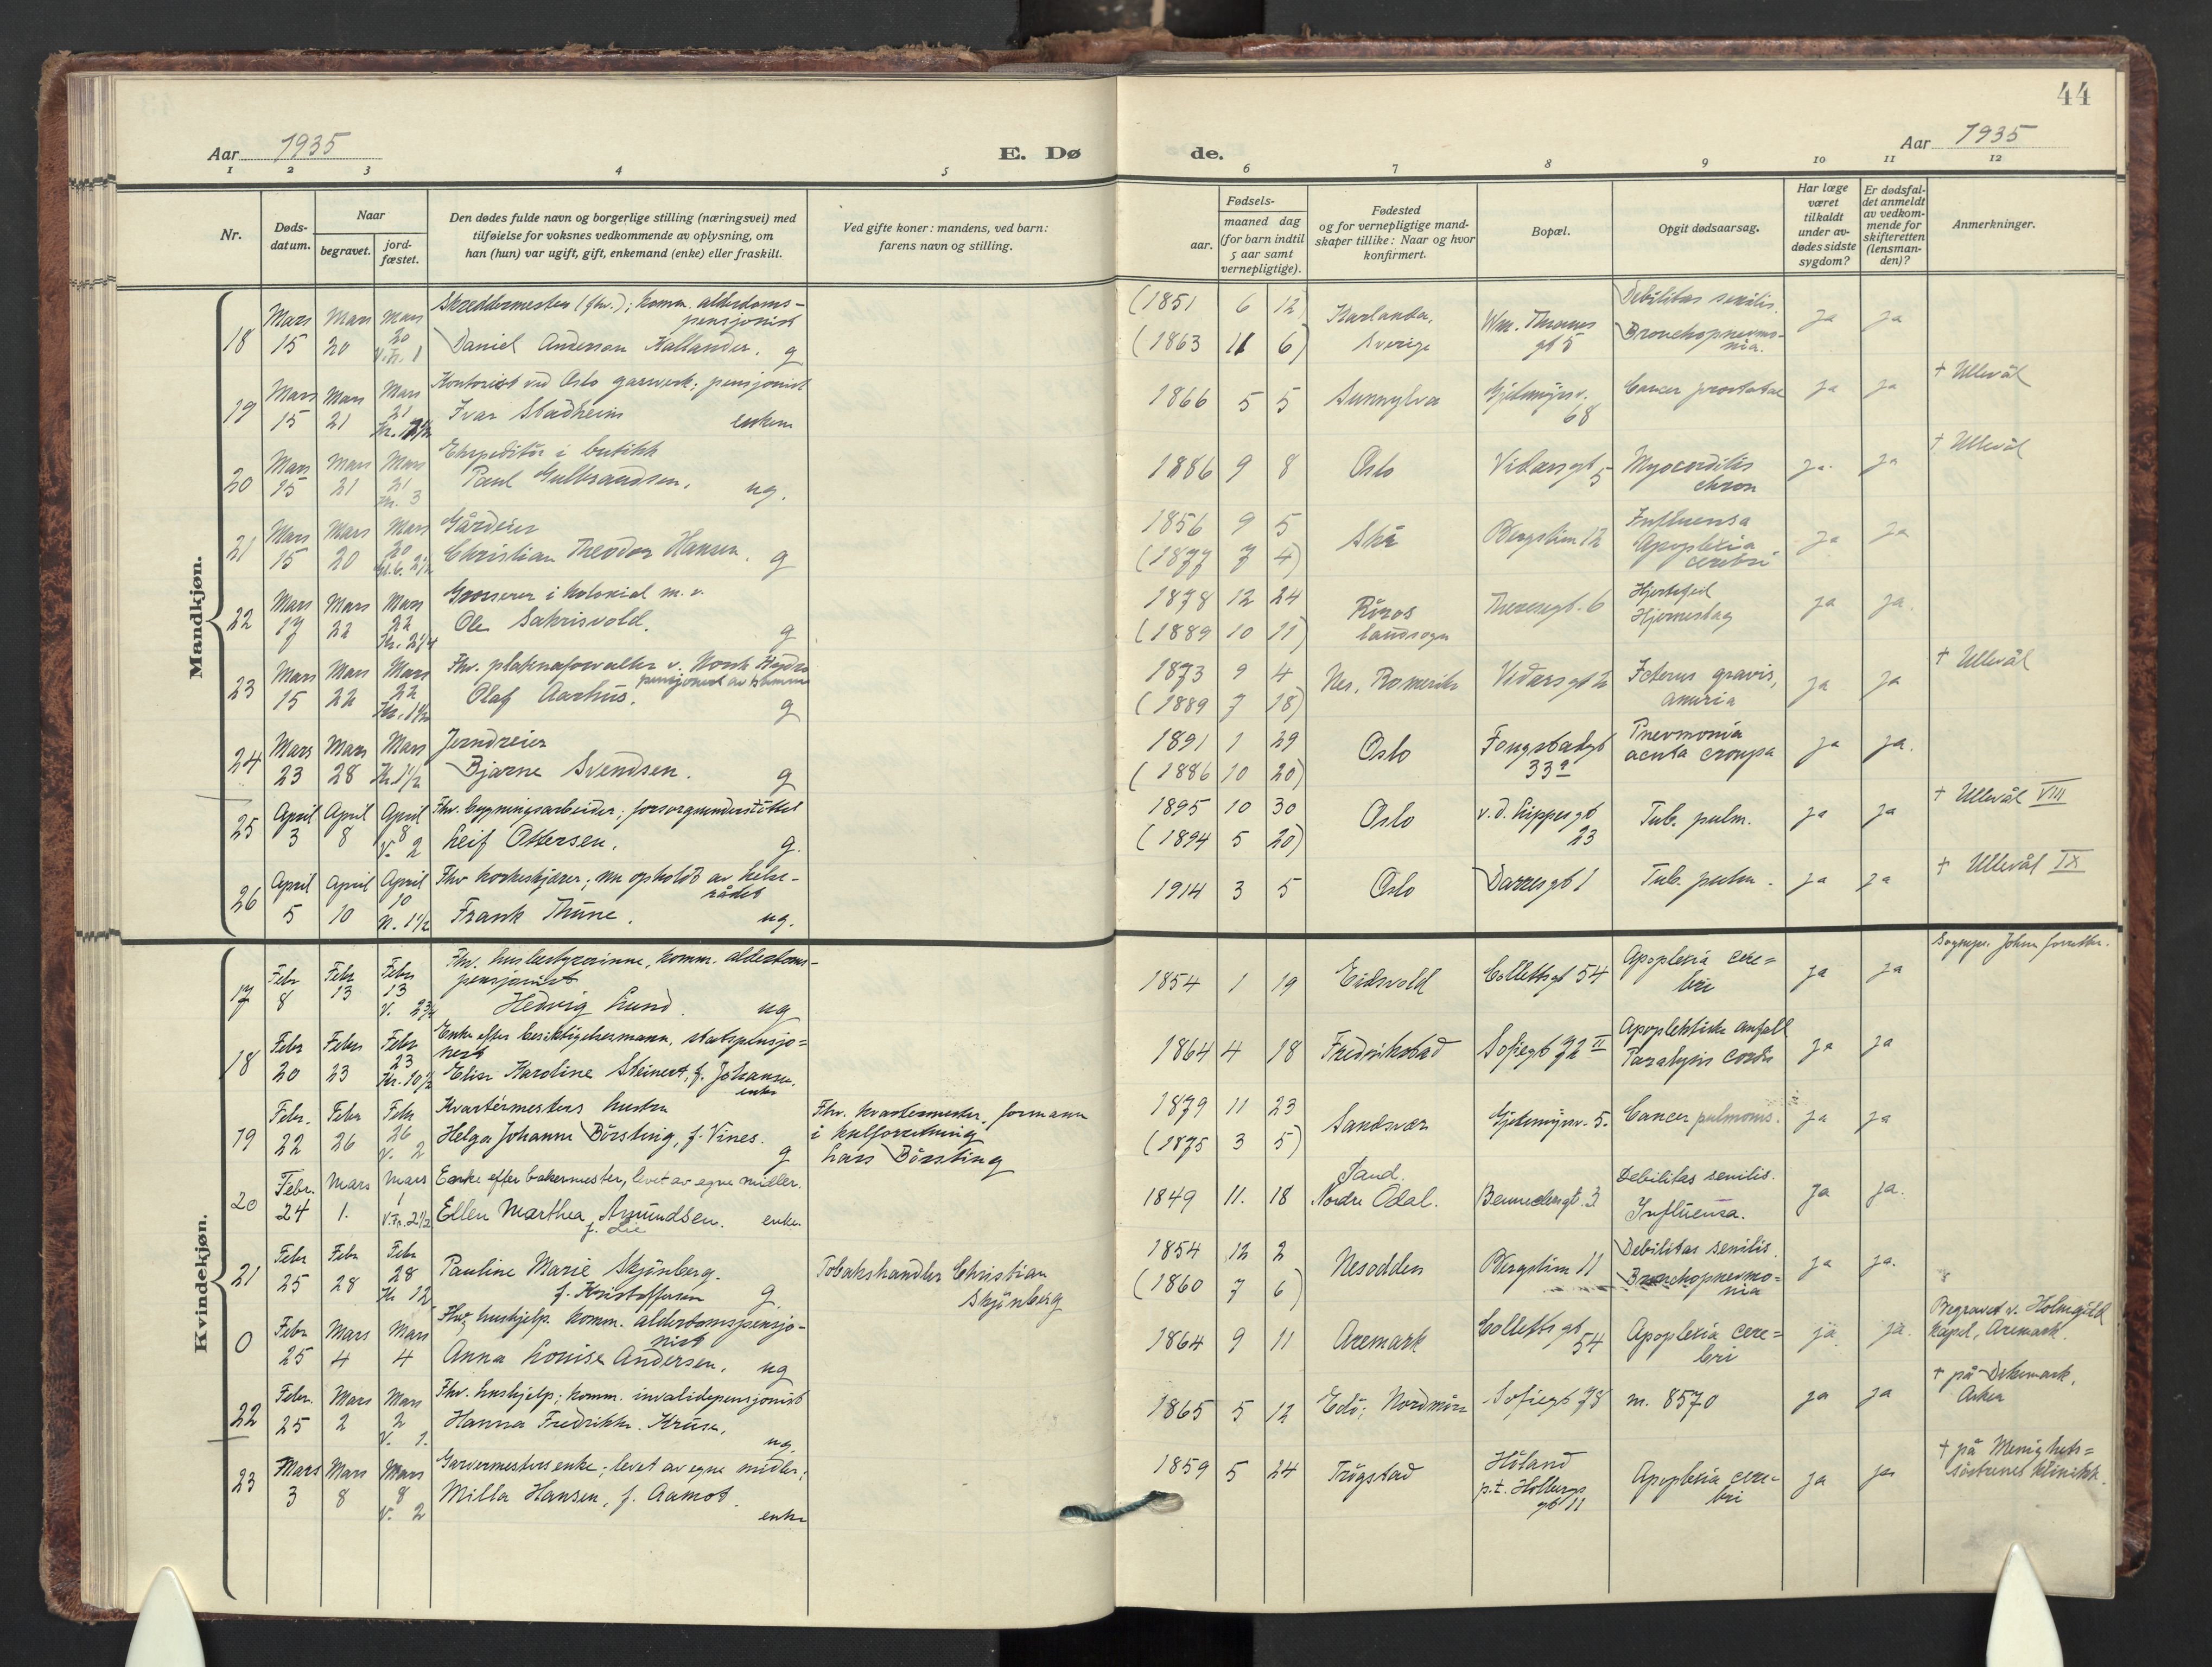 44
Aar 1935
E. Dø
de.
Aar 1935
1 2 3 4 5 6 7 8 9 10 11 12
Nr.
Døds-
datum.
Naar
begravet.
jord-
fæstet.
Den dødes fulde navn og borgerlige stilling (næringsvei) med
tilføielse for voksnes vedkommende av oplysning, om
han (hun) var ugift, gift, enkemand (enke) eller fraskilt.
Ved gifte koner: mandens, ved barn:
farens navn og stilling.
Fødsels-
aar.
maaned dag
(for barn indtil
5 aar samt
vernepligtige).
Fødested
og for vernepligtige mand-
skaper tillike: Naar og hvor
konfirmert.
Bopæl.
Opgit dødsaarsag.
Har læge
været
tilkaldt
under av-
dødes sidste
sygdom?
Er dødsfal-
det anmeldt
av vedkom-
mende for
skifteretten
(lensman-
den)?
Anmerkninger.
Mandkjøn.
18 Mars 15 Mars 20 Mars 20
Skreddermester (fhv.); komm. alderdoms-
pensjonist
Daniel Anderson Kallander. g
(1851 6 12)
(1863 11 6)
Karlanda,
Sverige
Wm. Thranes
gt 5
Debilitas senilis.
Bronchopneumo-
nia.
ja ja
19 Mars 15 Mars 21 Mars 21
Kontorist ved Oslo gasverk; pensjonist
Ivar Stadheim enkem
1866 5 5 Sunnylva
Gjetemyrsv.
68
Cancer prostatae ja ja + Ullevål
20 Mars 15 Mars 21 Mars 21 Kr. 3
Ekspeditør i butikk
Paul Gulbrandsen. ug.
1886 9 8 Oslo Vidarsgt 5
Myocarditis
chron
ja. ja + Ullevål
21 Mars 15 Mars 20 Mars 20
Gårdeier
Christian Theodor Hansen. g
1856 9 5
(1877 7 4)
Skå Bergslien 12
Influensa
Apoplexia
cerebri
ja ja
22 Mars 17 Mars 22 Mars 22 Kr. 2 1/4
Grosserer i kolonial m. v.
Ole Sakrisvold. g
1878 12 24
(1889 10 11)
Røros
landsogn
Theresesgt. 6
Hjertefeil
Hjerneslag
ja ja.
23 Mars 15 Mars 22 Mars 22 Kr. 1 1/2
Fhv. platnaforvalter v. Norsk Hydro
pensjonert av samme
Olaf Aarhus. g
1873 9 4
(1889 7 18)
Nes, Romerike Vidarsgt 2
Icterus gravis,
anuria
ja ja + Ullevål
24 Mars 23 Mars 28 Mars Kr. 1 1/2
Jerndreier
Bjarne Svendsen. g
1891 1 29
(1886 10 20)
Oslo
Fougstadgt
33 a
Pnevmonia
acuta croupa
ja ja.
25 April 3 April 8 April 8 V. 2
Fhv. bygningsarbeider; forsorgsunderstøttet
Leif Ottersen. g.
1895 10 30
(1894 5 20)
Oslo
v. d. Lippesgt
23
Tub. pulm. ja ja + Ullevål VIII
26 April 5 April 10 April 10 N. 1 1/2
Fhv korkeskjærer; nu opholdt av helse-
rådet
Frank Thune. ug.
1914 3 5 Oslo Darresgt 1 Tub. pulm. ja ja + Ullevål IX
Kvindekjøn.
17 Febr 8 Febr 13 Febr 13 V. 2 3/4
Fhv. husbestyrerinne, komm. alderdoms-
pensjonist
Hedvig Lund. ug
1854 1 19 Eidsvold Collettsgt 54
Apoplexia cere=
bri
ja ja Sognepr. Johns forretter.
18 Febr 20 Febr 23 Febr 23 Kr. 10 1/2
Enke efter besiktigelsesmann, statspensjo=
nert
Elise Karoline Steinert, f. Johansen.
enke
1864 4 18 Fredrikstad Sofiegt 72 II
Apoplektisk anfall
Paralysis cordis
ja ja
19 Febr. 22 Febr 26 Febr 26 V. 2
Kvartérmesters hustru
Helga Johanne Børsting, f. Vines. g
Fhv. kvartermester, formann
i kulforretning
Lars Børsting
1879 11 23
(1875 3 5)
Sandsvær Gjetemyrsv. 5. Cancer pulmonis. ja ja
20 Febr. 24 Mars 1. Mars 1 V.Fr. 2 1/2
Enke efter bakermester, levet av egne midler.
Ellen Marthea Amundsen. enke
f. Lie
1849 11. 18
Sand.
Nordre Odal.
Bennechesgt. 3
Debilitas senilis.
Influensa.
ja ja.
21 Febr 25 Febr 28 Febr 28 Kr 12
Pauline Marie Skjønberg.
f. Kristoffersen g.
Tobakshandler Christian
Skjønberg
1854 12 2
(1860 7 6)
Nesodden Bergslien 11
Debilitas senilis.
Bronchopnevmo=
nia
ja ja.
0 Febr 25 Mars 4 Mars 4
Fhv. hushjelp. komm. alderdomspensjo-
nist
Anna Louise Andersen. ug
1864 9 11 Aremark
Colletts gt
54
Apoplexia cere=
bri
ja. ja.
Begravet v. Holmgild
kapel, Aremark.
22 Febr. 25 Mars 2 Mars 2 V. 1.
Fhv. hushjelp; komm. invalidepensjonist
Hanna Fredrikke Kruse. ug.
1865 5 12 Edø, Nordmøre Sofiegt 78 m. 8570 ja ja
+ på Dikemark,
Asker
23 Mars 3 Mars 8 Mars 8 V. 2
Garvermesters enke; levet av egne midler;
Milla Hansen, f. Aamot.
enke
1859 5 24 Trøgstad
Høland
p.t. Holbergs
gt 11
Apoplexia cere-
bri
ja ja
+ på Menighets=
søstrenes klinikk.